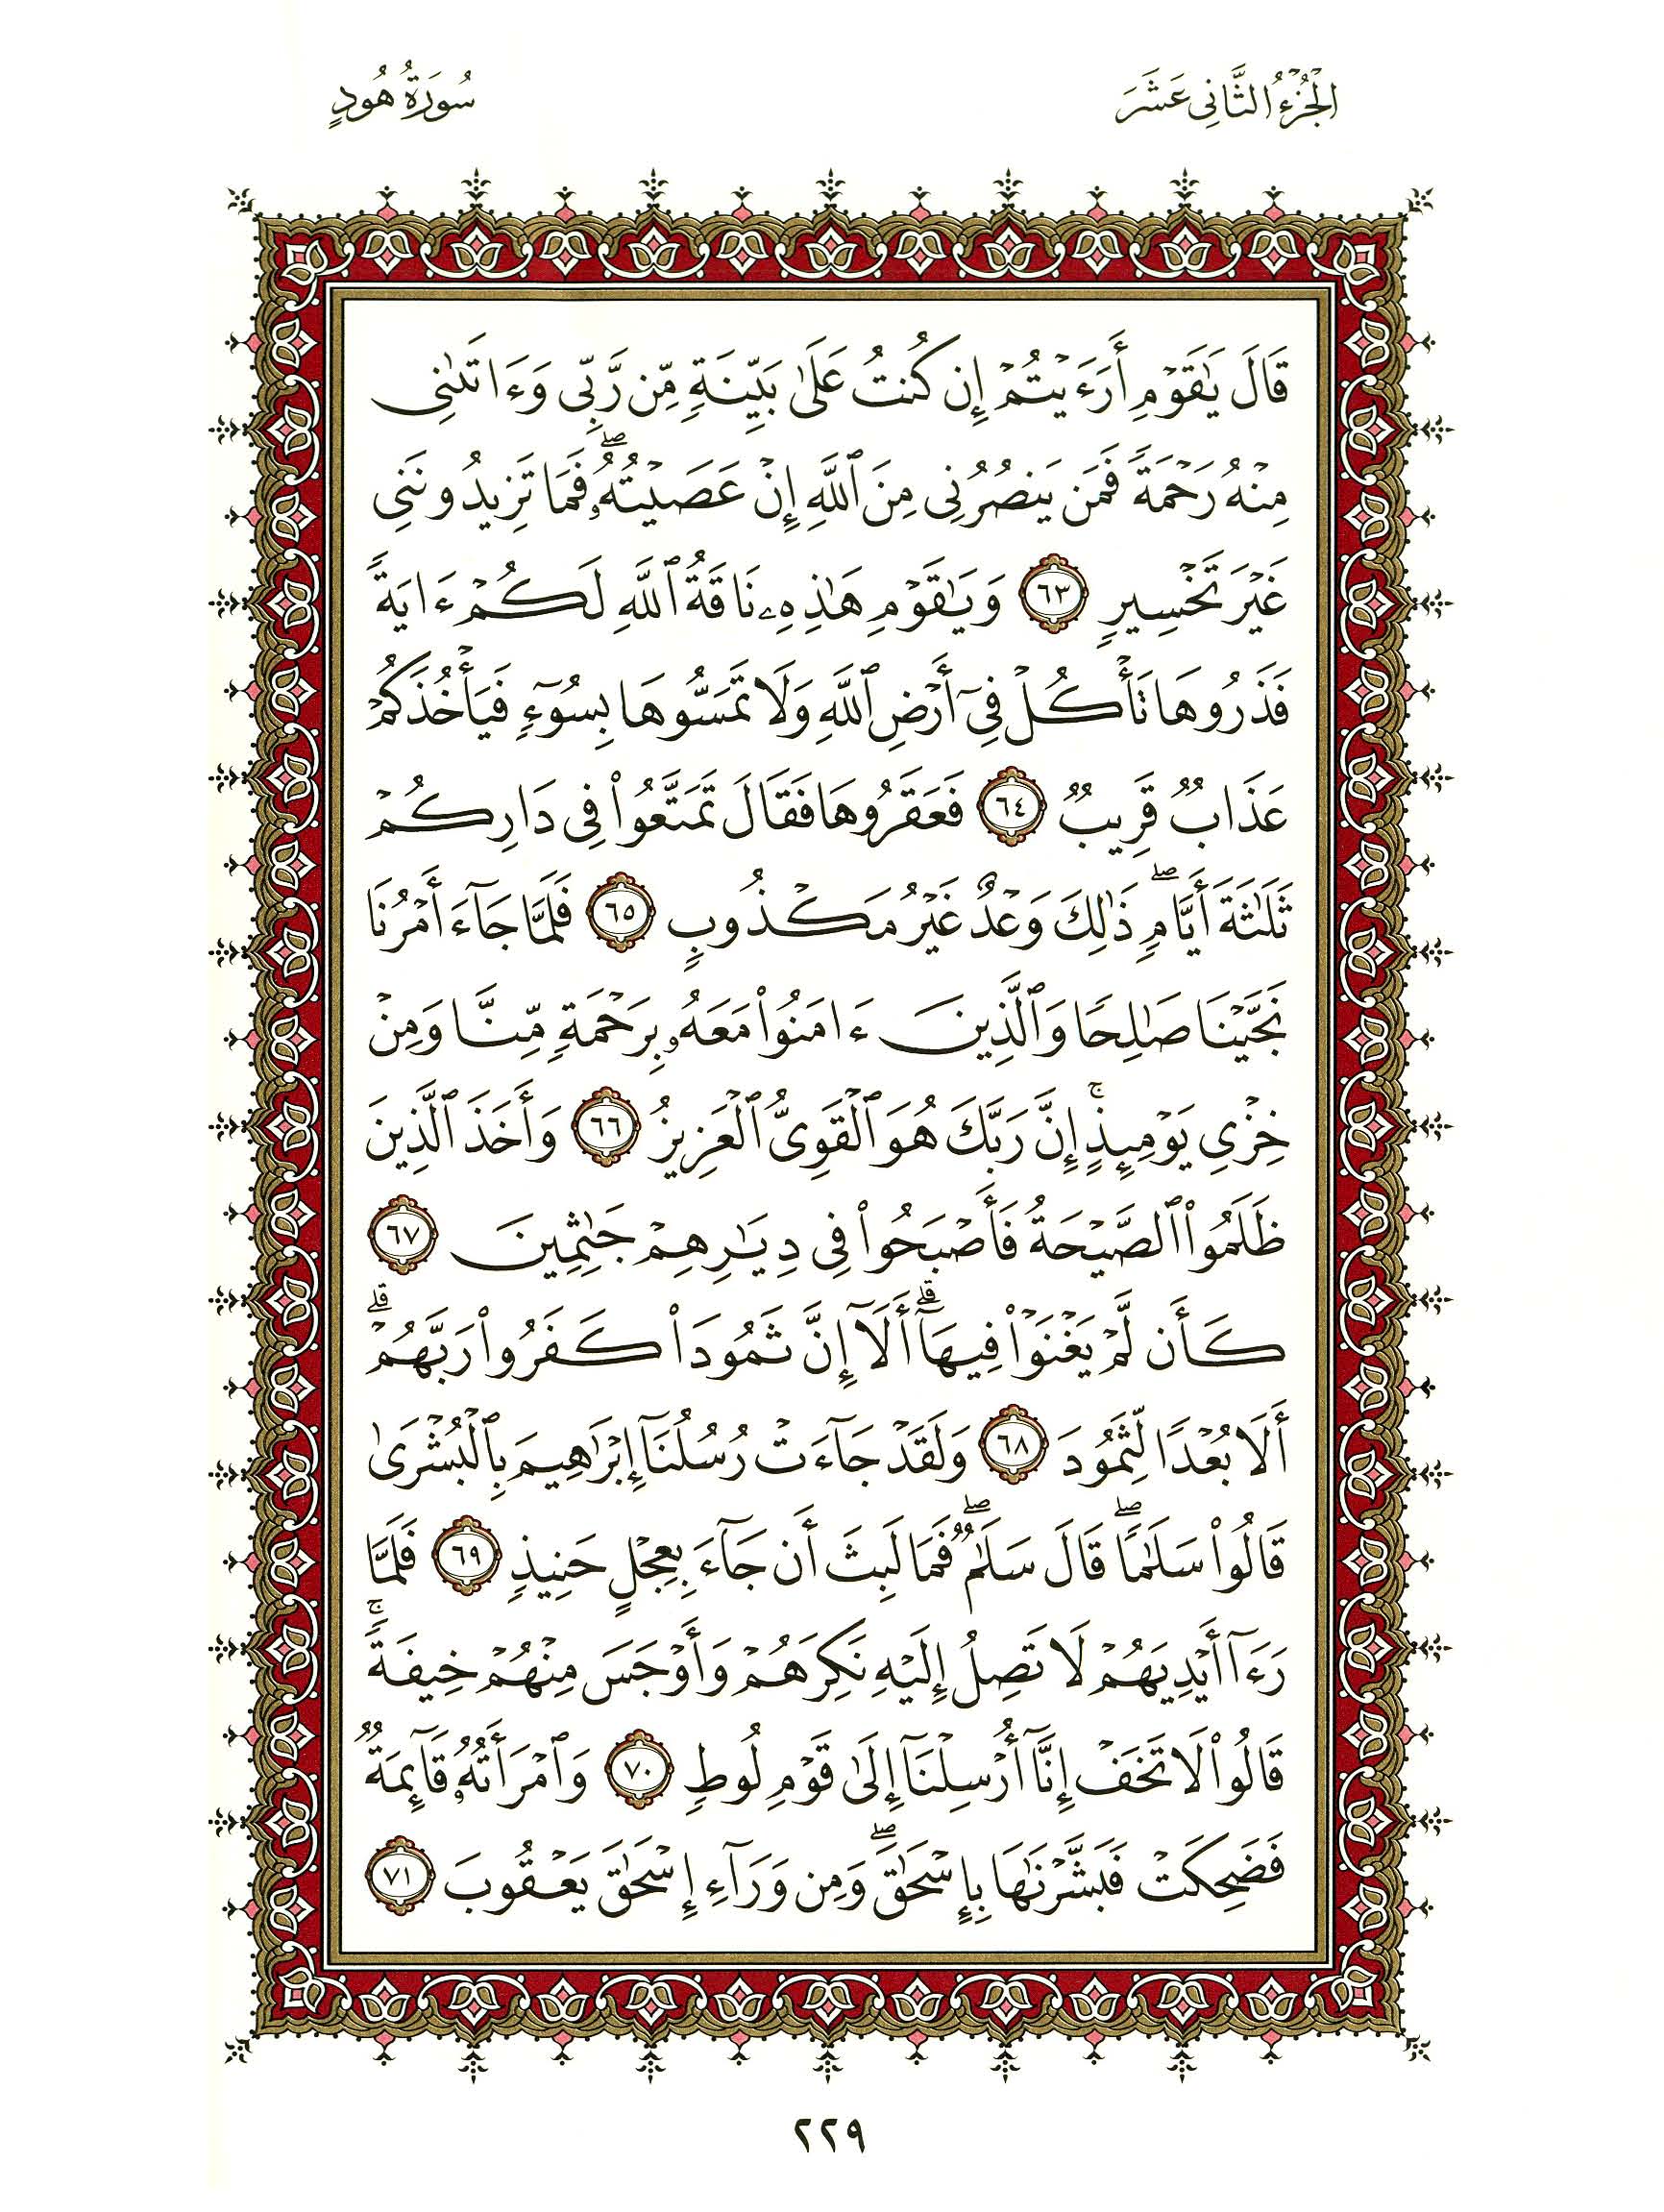 الجُزْءُ الثَّانِي عَشَرَ
سُورَةُ هُودٍ
قَالَ يَٰقَوْمِ أَرَءَيْتُمْ إِن كُنتُ عَلَىٰ بَيِّنَةٍ مِّن رَّبِّى وَءَاتَىٰنِى
مِنْهُ رَحْمَةً فَمَن يَنصُرُنِى مِنَ ٱللَّهِ إِنْ عَصَيْتُهُۥ ۖ فَمَا تَزِيدُونَنِى
غَيْرَ تَخْسِيرٍ ٦٣ وَيَٰقَوْمِ هَٰذِهِۦ نَاقَةُ ٱللَّهِ لَكُمْ ءَايَةً
فَذَرُوهَا تَأْكُلْ فِىٓ أَرْضِ ٱللَّهِ وَلَا تَمَسُّوهَا بِسُوٓءٍ فَيَأْخُذَكُمْ
عَذَابٌ قَرِيبٌ ٦٤ فَعَقَرُوهَا فَقَالَ تَمَتَّعُوا۟ فِى دَارِكُمْ
ثَلَٰثَةَ أَيَّامٍ ۖ ذَٰلِكَ وَعْدٌ غَيْرُ مَكْذُوبٍ ٦٥ فَلَمَّا جَآءَ أَمْرُنَا
نَجَّيْنَا صَٰلِحًا وَٱلَّذِينَ ءَامَنُوا۟ مَعَهُۥ بِرَحْمَةٍ مِّنَّا وَمِنْ
خِزْىِ يَوْمِئِذٍ ۚ إِنَّ رَبَّكَ هُوَ ٱلْقَوِىُّ ٱلْعَزِيزُ ٦٦ وَأَخَذَ ٱلَّذِينَ
ظَلَمُوا۟ ٱلصَّيْحَةُ فَأَصْبَحُوا۟ فِى دِيَٰرِهِمْ جَٰثِمِينَ ٦٧
كَأَن لَّمْ يَغْنَوْا۟ فِيهَآ ۗ أَلَآ إِنَّ ثَمُودَا۟ كَفَرُوا۟ رَبَّهُمْ ۗ
أَلَا بُعْدًا لِّثَمُودَ ٦٨ وَلَقَدْ جَآءَتْ رُسُلُنَآ إِبْرَٰهِيمَ بِٱلْبُشْرَىٰ
قَالُوا۟ سَلَٰمًا ۖ قَالَ سَلَٰمٌ ۖ فَمَا لَبِثَ أَن جَآءَ بِعِجْلٍ حَنِيذٍ ٦٩ فَلَمَّا
رَءَآ أَيْدِيَهُمْ لَا تَصِلُ إِلَيْهِ نَكِرَهُمْ وَأَوْجَسَ مِنْهُمْ خِيفَةً ۚ
قَالُوا۟ لَا تَخَفْ إِنَّآ أُرْسِلْنَآ إِلَىٰ قَوْمِ لُوطٍ ٧٠ وَٱمْرَأَتُهُۥ قَآئِمَةٌ
فَضَحِكَتْ فَبَشَّرْنَٰهَا بِإِسْحَٰقَ ۖ وَمِن وَرَآءِ إِسْحَٰقَ يَعْقُوبَ ٧١
٢٢٩